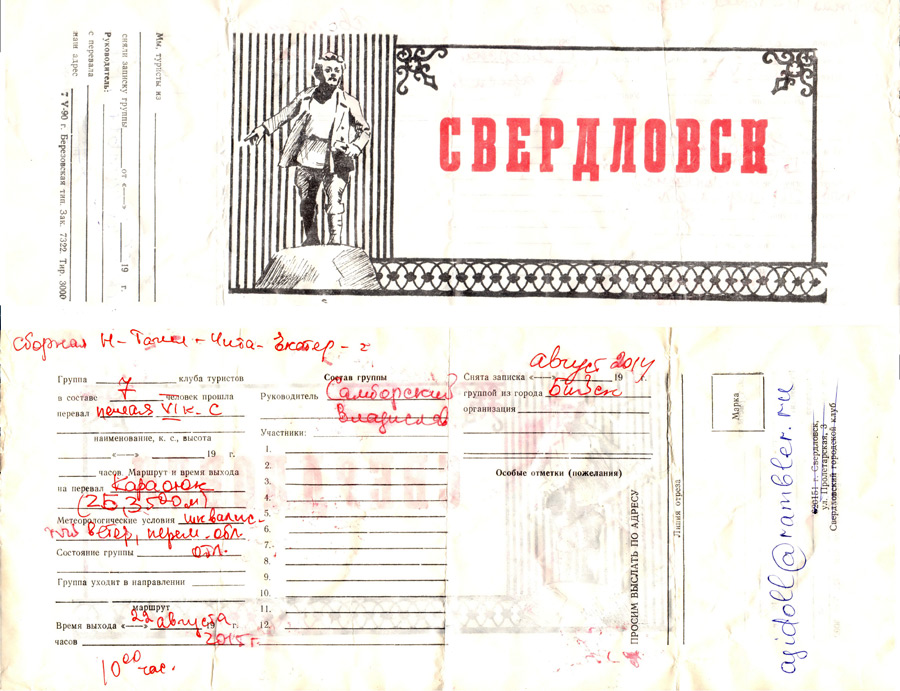 Мы, туристы из
сняли записку группы от «—» 19 г.
Руководитель:
с перевала
наш адрес
7 V-90 г. Березовская тип. Зак. 7322. Тир. 3000
СВЕРДЛОВСК
сборная Н-Тагил - Чита - Экатер - г
Группа 7 клуба туристов
в составе 7 человек прошла
перевал пешая VI к. с
наименование, к. с., высота
«—» 19 г.
часов. Маршрут и время выхода
на перевал Караоюк
(2Б, 3500 м)
Метеорологические условия шквалис-
тый ветер, перем. обл.
Состояние группы отл.
Группа уходит в направлении
маршрут
Время выхода «—» 22 августа
часов 2015 г.
10 00 час.
Состав группы
Руководитель Самборский
Владислав
Участники:
1.
2.
3.
4.
5.
6.
7.
8.
9.
10.
11.
12.
август 2014
Снята записка «—» 19 г.
группой из города Бийск
организация
Особые отметки (пожелания)
ПРОСИМ ВЫСЛАТЬ ПО АДРЕСУ
Линия отреза
Марка
agidoll@rambler.ru
620151 г. Свердловск,
ул. Пролетарская, 3
Свердловский городской клуб